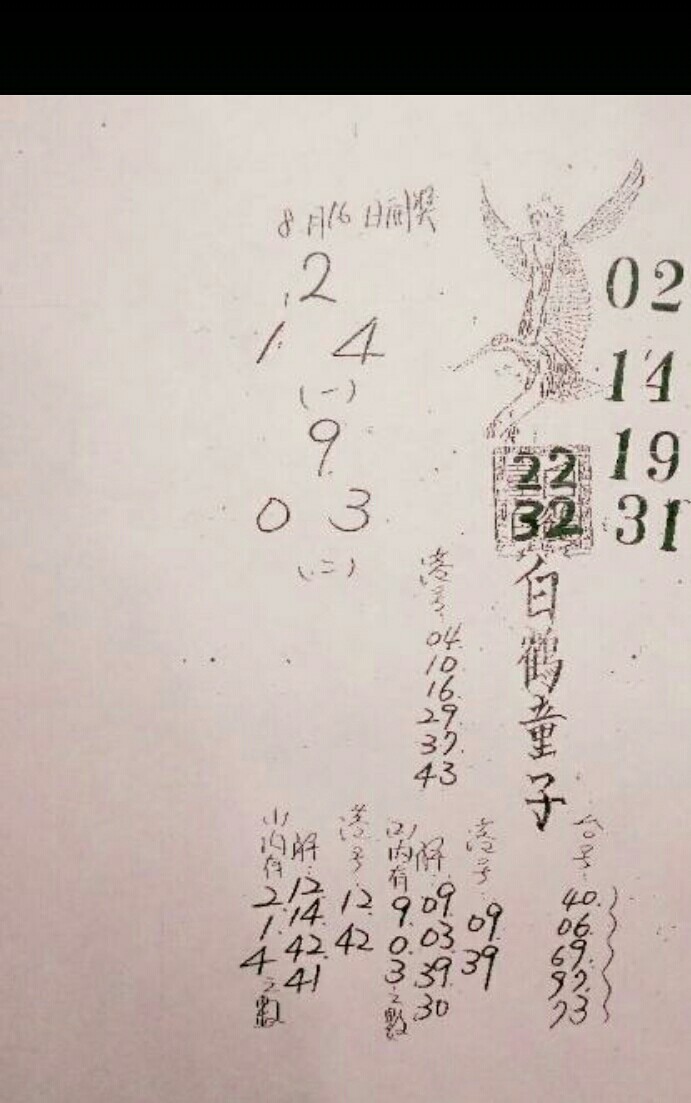 8月16日開獎
2
1 4
(一)
9
0 3
(二)
02
14
19
31
22
32
白鶴童子
港号:
04.
10.
16.
29.
37.
43
(1)內有
2.
1.
4
之數
解:
12.
14.
42.
41
港号:
12.
42
(2)內有
9.
0.
3
之數
解:
09.
03.
39.
30
港号:
09.
39
台号:
40.
06.
69.
97.
73